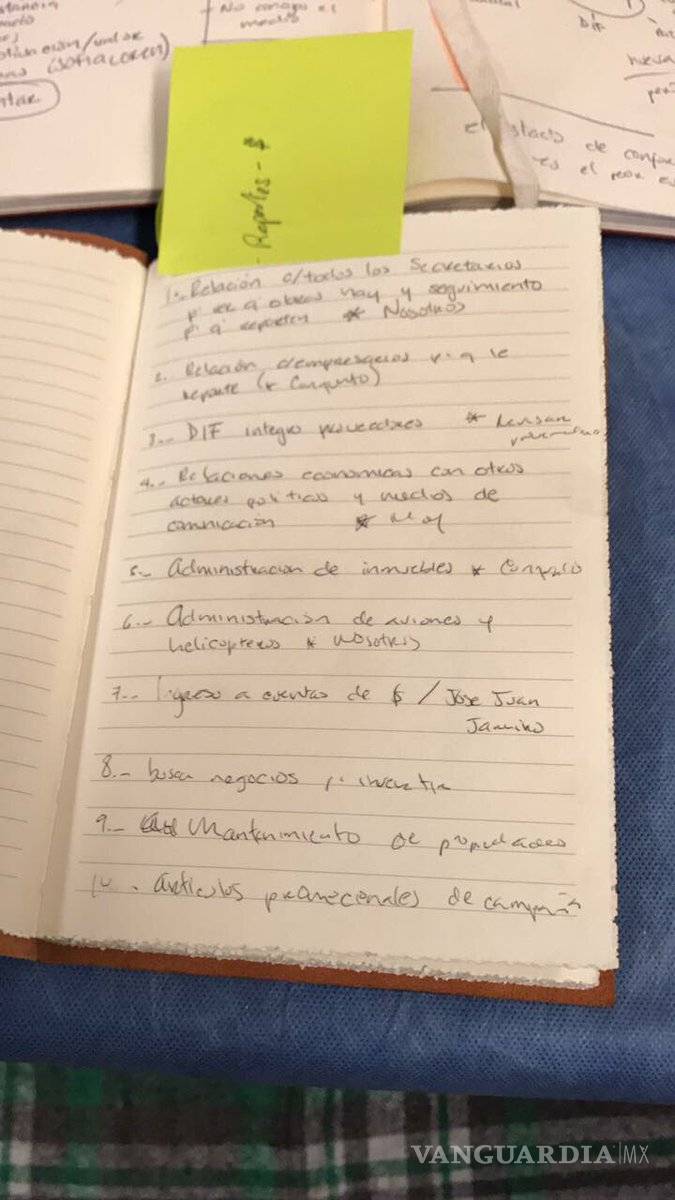 + No conozco el
medio
DIF
nueva
el estado de
es el peor
- Reportes - $
1.- Relación c/todos los Secretarios
p' ver q obras hay y seguimiento
p' q' reporten * Nosotros
2. Relación c/empresarios p' q le
reporte (* Conjunto)
3.- DIF integro proveedores * Revisan
4.- Relaciones economicas con otros
actores politicos y medios de
comnicación *
5.- Administracion de inmuebles * Conjunto
6.- Administración de aviones y
helicopteros * Nosotros
7.- Ingreso a cuentas de $ / Jose Juan
Janeiro
8.- busca negocios p' invertir
9.- Mantenimiento de propiedades
10. Artículos promocionales de campaña
VANGUARDIA|MX